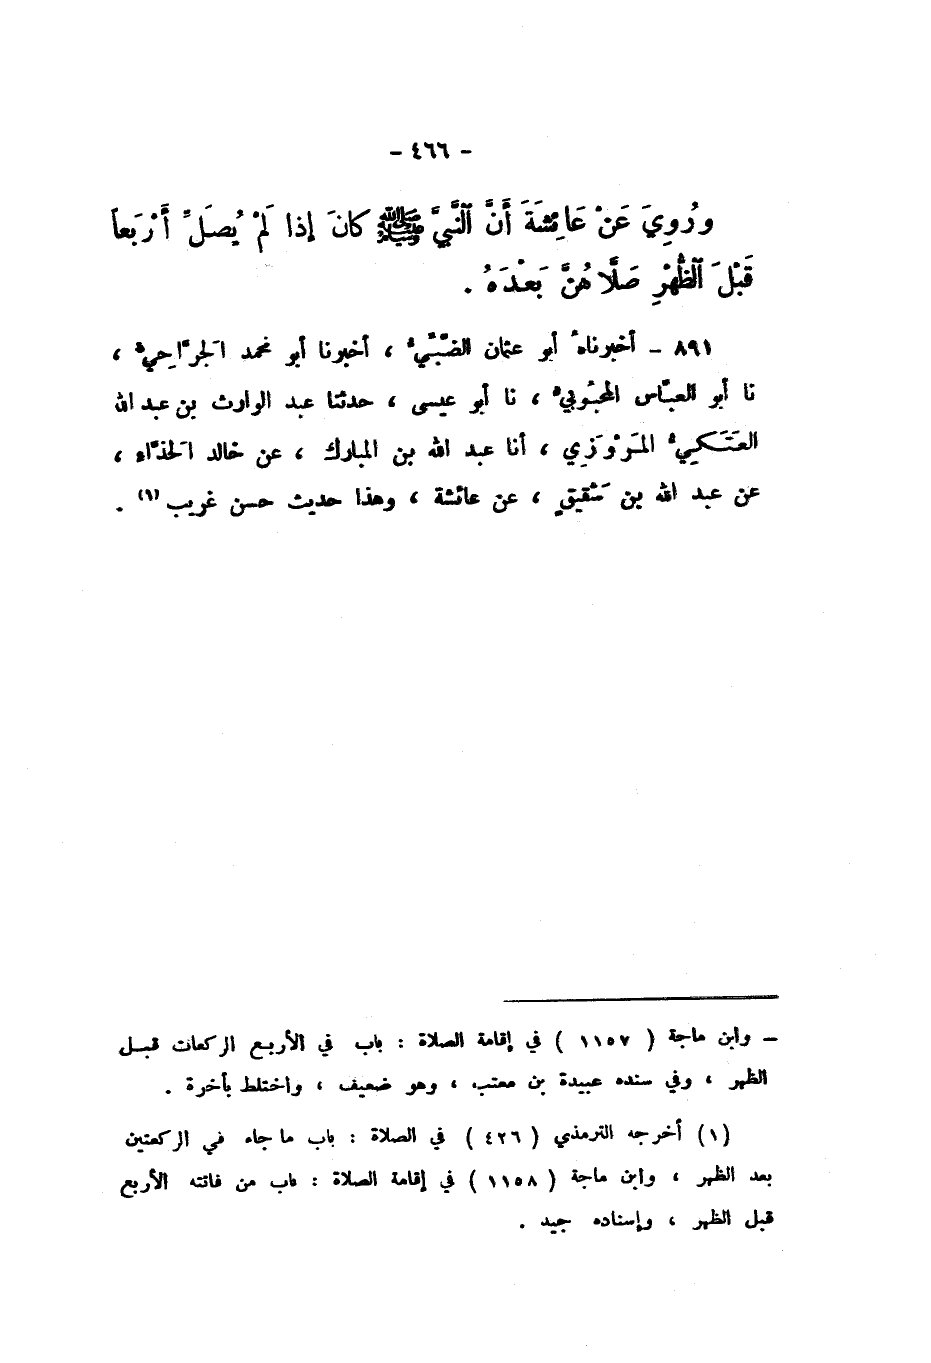 - ٤٦٦ -
ورُوِيَ عَنْ عَائِشَةَ أَنَّ ٱلنَّبِيَّ ﷺ كَانَ إِذا لَمْ يُصَلِّ أَرْبَعاً
قَبْلَ ٱلظُّهْرِ صَلَّاهُنَّ بَعْدَهُ .
٨٩١ - أخبرناهُ أبو عثمان الضَّبِّيُّ ، أخبرنا أبو محمد الَجرَّاحِيُّ ،
نا أبو العبَّاس المحبُوبيُّ ، نا أبو عيسى ، حدثنا عبد الوارث بن عبد الله
العَتَكيُّ المَرْوَزِي ، أنا عبد الله بن المبارك ، عن خالد الَحذَّاء ،
عن عبد الله بن شَقيقٍ ، عن عائشة ، وهذا حديث حسن غريب (١) .
ـ وابن ماجة ( ١١٥٧ ) في إقامة الصلاة : باب في الأربع الركعات قبل
الظهر ، وفي سنده عبيدة بن معتب ، وهو ضعيف ، واختلط بأخرة .
(١) أخرجه الترمذي ( ٤٢٦ ) في الصلاة : باب ما جاء في الركعتين
بعد الظهر ، وابن ماجة ( ١١٥٨ ) في إقامة الصلاة : باب من فاتته الأربع
قبل الظهر ، وإسناده جيد .